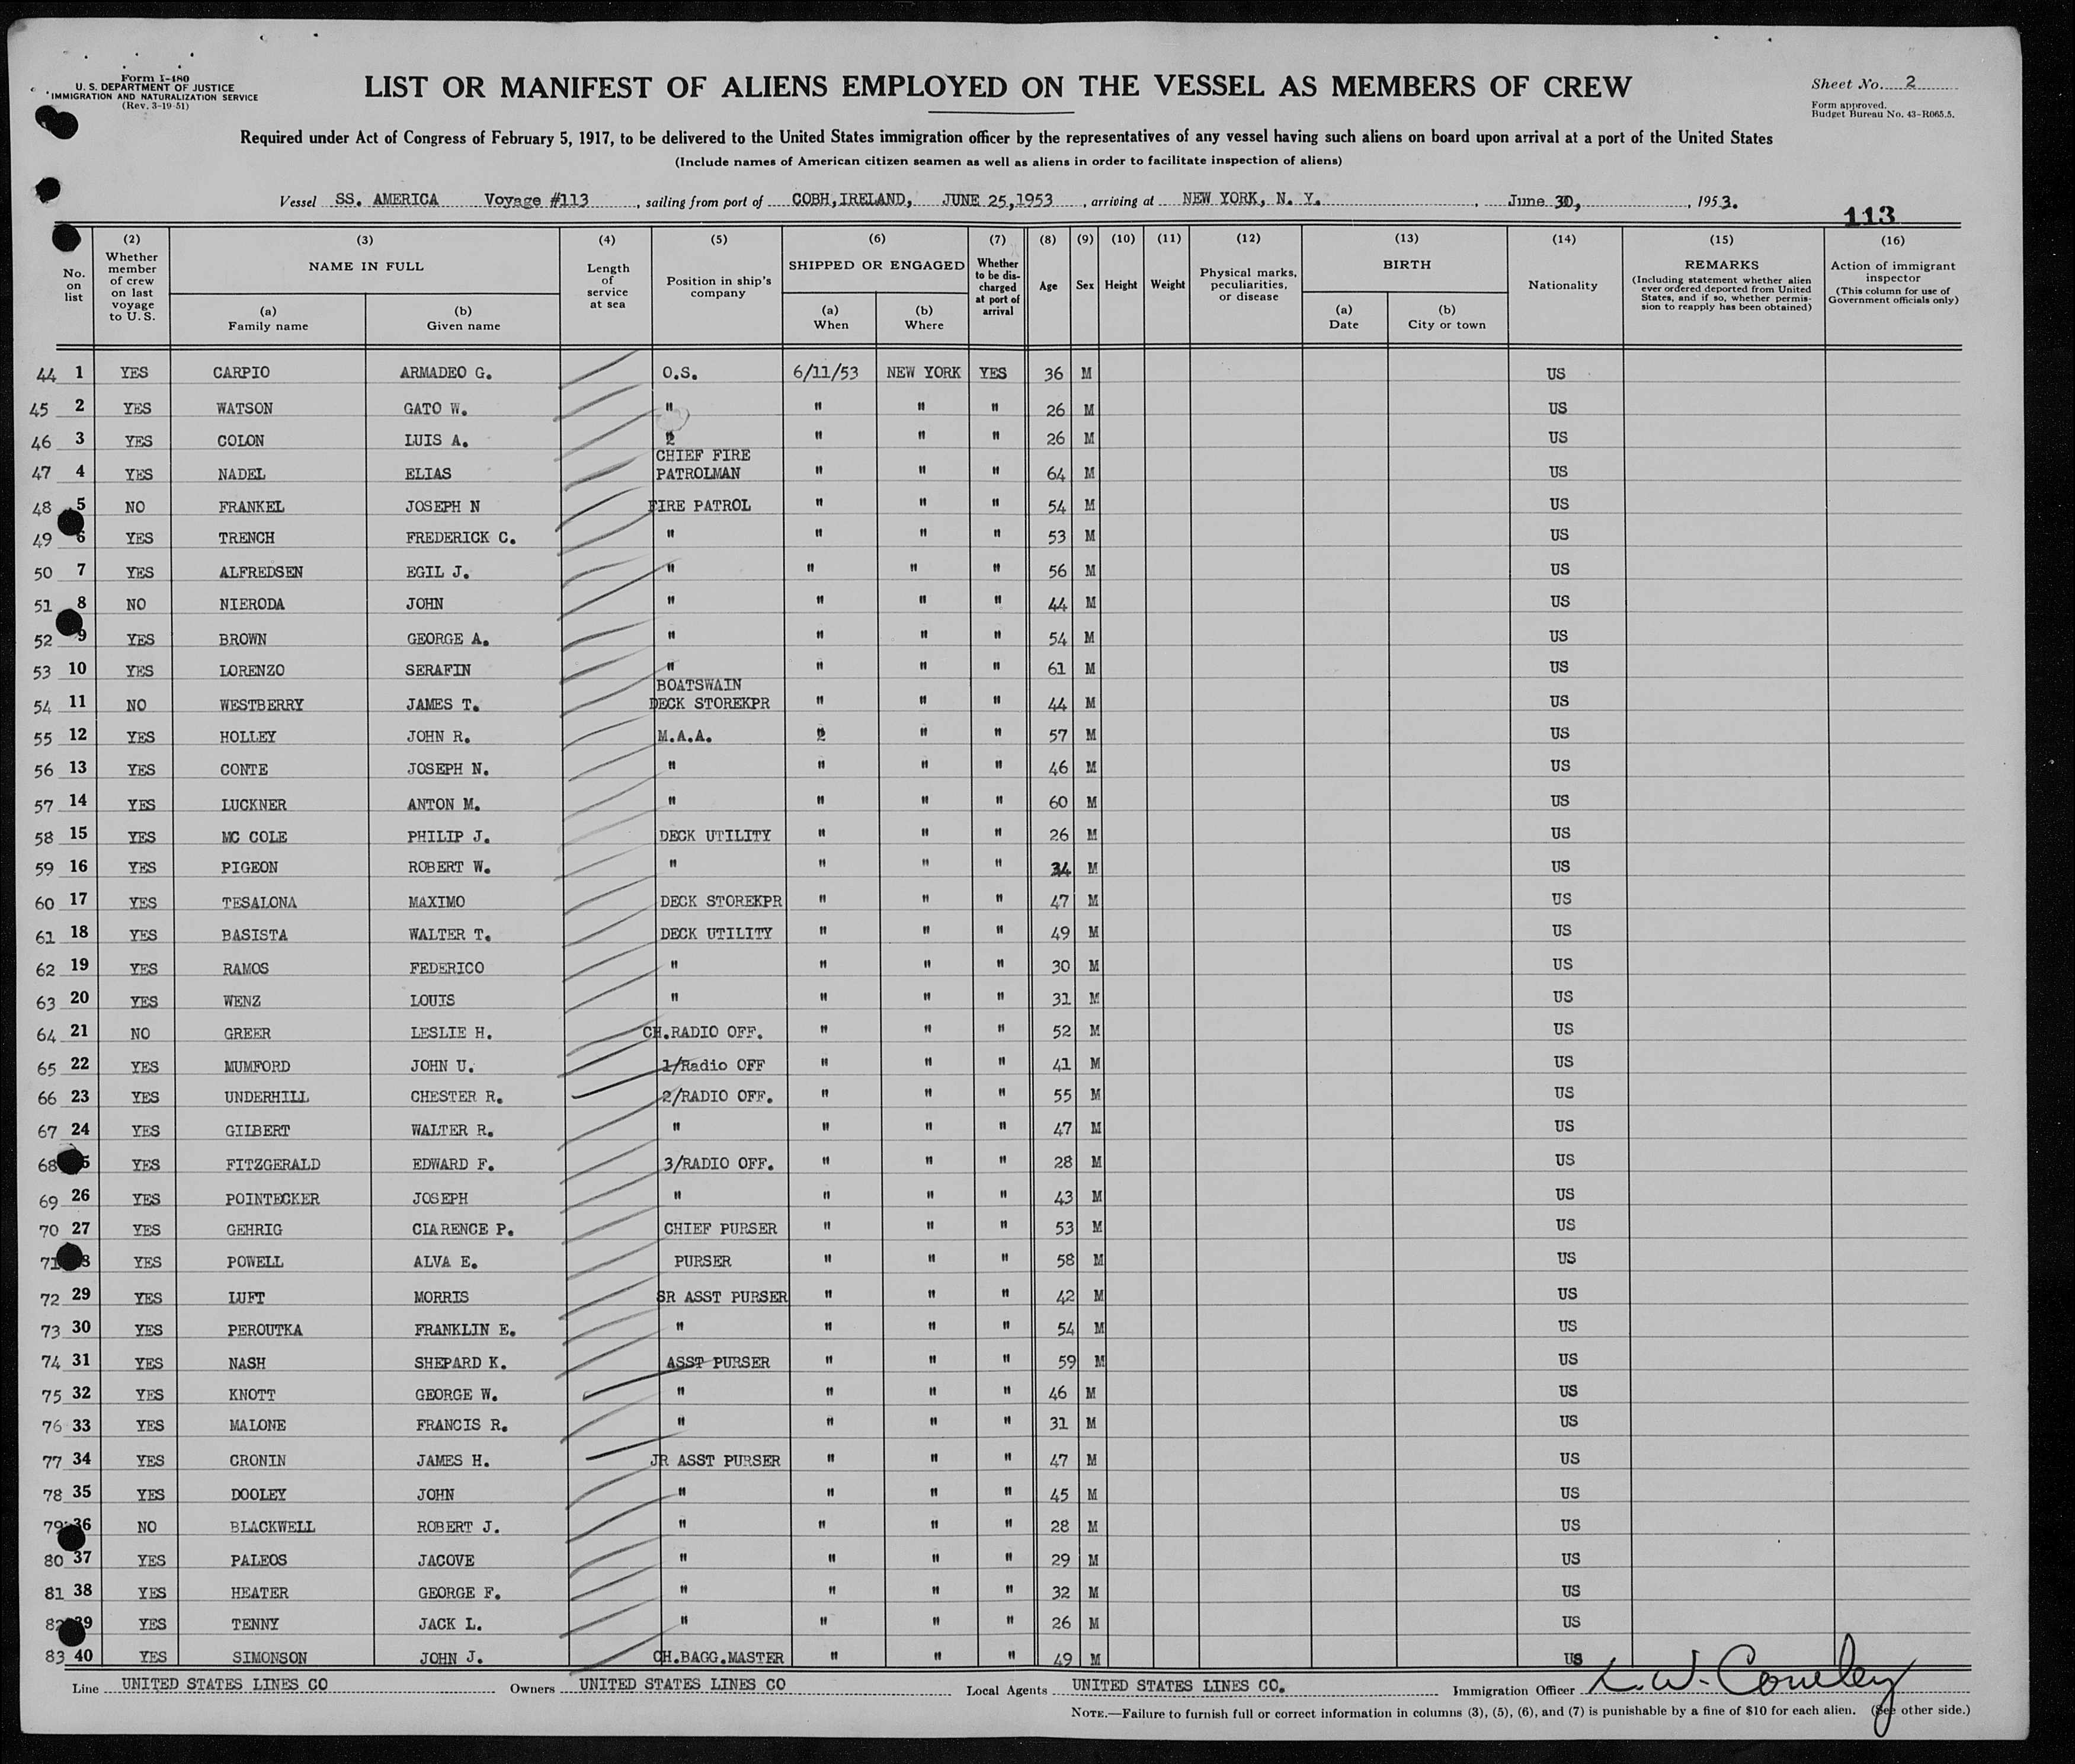 Form I-480
U. S. DEPARTMENT OF JUSTICE
IMMIGRATION AND NATURALIZATION SERVICE
(Rev. 3-19-51)
LIST OR MANIFEST OF ALIENS EMPLOYED ON THE VESSEL AS MEMBERS OF CREW
Sheet No. 2
Form approved.
Budget Bureau No. 43-R065.5.
Required under Act of Congress of February 5, 1917, to be delivered to the United States immigration officer by the representatives of any vessel having such aliens on board upon arrival at a port of the United States
(Include names of American citizen seamen as well as aliens in order to facilitate inspection of aliens)
Vessel SS. AMERICA Voyage #113, sailing from port of COBH, IRELAND, JUNE 25, 1953, arriving at NEW YORK, N. Y., June 30, 1953.
113
No. on list
(2) Whether member of crew on last voyage to U. S.
(3) NAME IN FULL
(a) Family name
(b) Given name
(4) Length of service at sea
(5) Position in ship's company
(6) SHIPPED OR ENGAGED
(a) When
(b) Where
(7) Whether to be discharged at port of arrival
(8) Age
(9) Sex
(10) Height
(11) Weight
(12) Physical marks, peculiarities, or disease
(13) BIRTH
(a) Date
(b) City or town
(14) Nationality
(15) REMARKS
(Including statement whether alien ever ordered deported from United States, and if so, whether permission to reapply has been obtained)
(16) Action of immigrant inspector
(This column for use of Government officials only)
44 1 YES CARPIO ARMADEO G. O.S. 6/11/53 NEW YORK YES 36 M US
45 2 YES WATSON GATO W. " " " " 26 M US
46 3 YES COLON LUIS A. " " " " 26 M US
47 4 YES NADEL ELIAS CHIEF FIRE PATROLMAN " " " 64 M US
48 5 NO FRANKEL JOSEPH N FIRE PATROL " " " 54 M US
49 6 YES TRENCH FREDERICK C. " " " " 53 M US
50 7 YES ALFREDSEN EGIL J. " " " " 56 M US
51 8 NO NIERODA JOHN " " " " 44 M US
52 9 YES BROWN GEORGE A. " " " " 54 M US
53 10 YES LORENZO SERAFIN " " " " 61 M US
54 11 NO WESTBERRY JAMES T. BOATSWAIN DECK STOREKPR " " " 44 M US
55 12 YES HOLLEY JOHN R. M.A.A. " " " 57 M US
56 13 YES CONTE JOSEPH N. " " " " 46 M US
57 14 YES LUCKNER ANTON M. " " " " 60 M US
58 15 YES MC COLE PHILIP J. DECK UTILITY " " " 26 M US
59 16 YES PIGEON ROBERT W. " " " " 34 M US
60 17 YES TESALONA MAXIMO DECK STOREKPR " " " 47 M US
61 18 YES BASISTA WALTER T. DECK UTILITY " " " 49 M US
62 19 YES RAMOS FEDERICO " " " " 30 M US
63 20 YES WENZ LOUIS " " " " 31 M US
64 21 NO GREER LESLIE H. CH.RADIO OFF. " " " 52 M US
65 22 YES MUMFORD JOHN U. 1/Radio OFF " " " 41 M US
66 23 YES UNDERHILL CHESTER R. 2/RADIO OFF. " " " 55 M US
67 24 YES GILBERT WALTER R. " " " " 47 M US
68 5 YES FITZGERALD EDWARD F. 3/RADIO OFF. " " " 28 M US
69 26 YES POINTECKER JOSEPH " " " " 43 M US
70 27 YES GEHRIG CIARENCE P. CHIEF PURSER " " " 53 M US
71 8 YES POWELL ALVA E. PURSER " " " 58 M US
72 29 YES LUFT MORRIS SR ASST PURSER " " " 42 M US
73 30 YES PEROUTKA FRANKLIN E. " " " " 54 M US
74 31 YES NASH SHEPARD K. ASST PURSER " " " 59 M US
75 32 YES KNOTT GEORGE W. " " " " 46 M US
76 33 YES MALONE FRANCIS R. " " " " 31 M US
77 34 YES CRONIN JAMES H. JR ASST PURSER " " " 47 M US
78 35 YES DOOLEY JOHN " " " " 45 M US
79 36 NO BLACKWELL ROBERT J. " " " " 28 M US
80 37 YES PALEOS JACOVE " " " " 29 M US
81 38 YES HEATER GEORGE F. " " " " 32 M US
82 39 YES TENNY JACK L. " " " " 26 M US
83 40 YES SIMONSON JOHN J. CH.BAGG.MASTER " " " 49 M US
Line UNITED STATES LINES CO Owners UNITED STATES LINES CO Local Agents UNITED STATES LINES CO. Immigration Officer
NOTE.—Failure to furnish full or correct information in columns (3), (5), (6), and (7) is punishable by a fine of $10 for each alien. (See other side.)